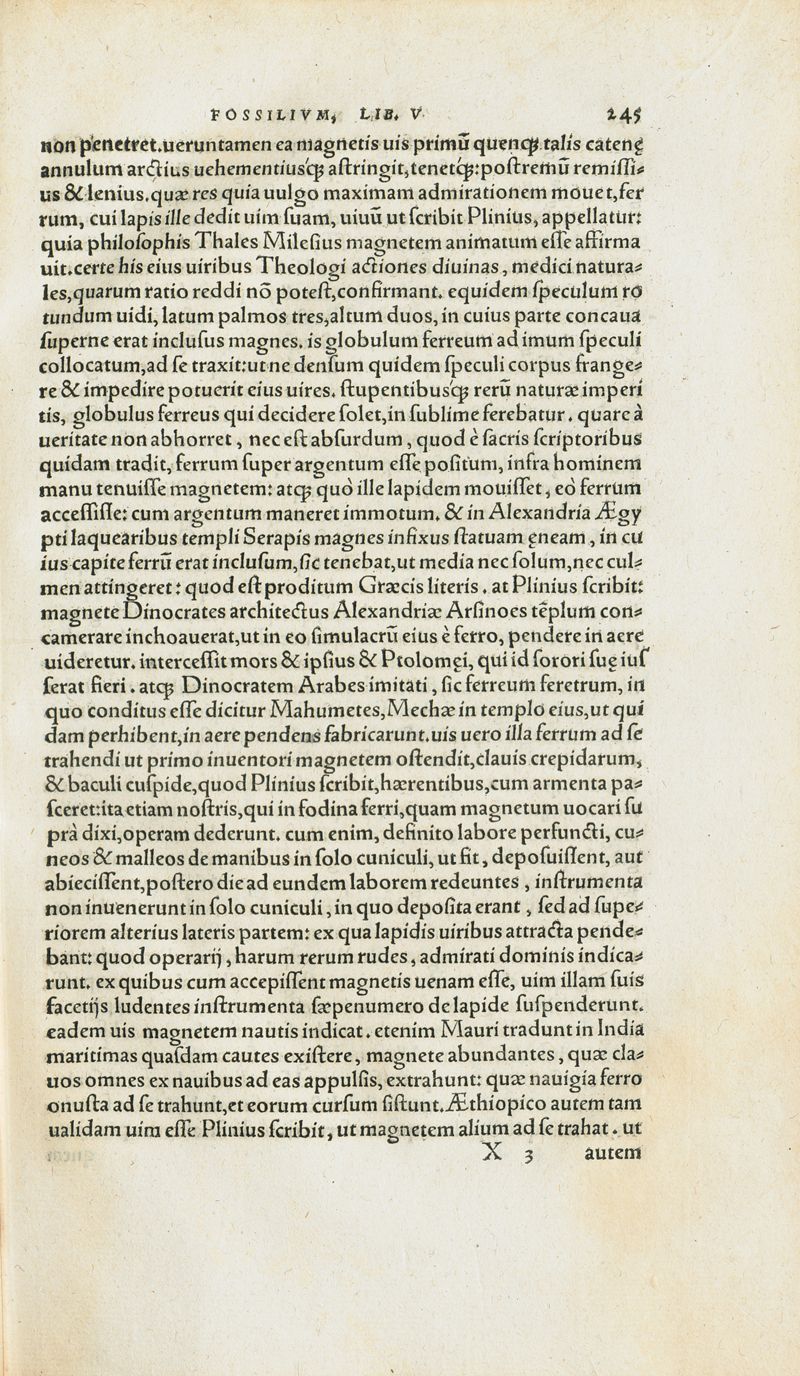 FOSSILIVM, LIB. V. 245
non penetret.ueruntamen ea magnetis uis primũ quenqꝫ talis catenę
annulum arctius uehementiusqꝫ́ aſtringit,tenetqꝫ́:poſtremũ remiſſi⸗
us & lenius.quæ res quia uulgo maximam admirationem mouet,fer
rum, cui lapis ille dedit uim ſuam, uiuũ ut ſcribit Plinius, appellatur:
quia philoſophis Thales Mileſius magnetem animatum eſſe affirma
uit.certe his eius uiribus Theologi actiones diuinas, medici natura⸗
les,quarum ratio reddi nõ poteſt,confirmant. equidem ſpeculum ro
tundum uidi, latum palmos tres,altum duos, in cuius parte concaua
ſuperne erat incluſus magnes. is globulum ferreum ad imum ſpeculi
collocatum,ad ſe traxit:ut ne denſum quidem ſpeculi corpus frange⸗
re & impedire potuerit eius uires. ſtupentibusqꝫ́ rerũ naturæ imperi
tis, globulus ferreus qui decidere ſolet,in ſublime ferebatur. quare à
ueritate non abhorret, nec eſt abſurdum, quod è ſacris ſcriptoribus
quidam tradit, ferrum ſuper argentum eſſe poſitum, infra hominem
manu tenuiſſe magnetem: atqꝫ quò ille lapidem mouiſſet, eò ferrum
acceſſiſſe: cum argentum maneret immotum. & in Alexandria Ægy
pti laquearibus templi Serapis magnes infixus ſtatuam ęneam, in cu
ius capite ferrũ erat incluſum,ſic tenebat,ut media nec ſolum,nec cul⸗
men attingeret: quod eſt proditum Græcis literis. at Plinius ſcribit:
magnete Dinocrates architectus Alexandriæ Arſinoes tẽplum con⸗
camerare inchoauerat,ut in eo ſimulacrũ eius è ferro, pendere in aere
uideretur. interceſſit mors & ipſius & Ptolomęi, qui id ſorori ſuę iuſ
ſerat fieri. atqꝫ Dinocratem Arabes imitati, ſic ferreum feretrum, in
quo conditus eſſe dicitur Mahumetes,Mechæ in templo eius,ut qui
dam perhibent,in aere pendens fabricarunt.uis uero illa ferrum ad ſe
trahendi ut primo inuentori magnetem oſtendit,clauis crepidarum,
& baculi cuſpide,quod Plinius ſcribit,hærentibus,cum armenta pa⸗
ſceret:ita etiam noſtris,qui in fodina ferri,quam magnetum uocari ſu
prà dixi,operam dederunt. cum enim, definito labore perfuncti, cu⸗
neos & malleos de manibus in ſolo cuniculi, ut fit, depoſuiſſent, aut
abieciſſent,poſtero die ad eundem laborem redeuntes, inſtrumenta
non inuenerunt in ſolo cuniculi, in quo depoſita erant, ſed ad ſupe⸗
riorem alterius lateris partem: ex qua lapidis uiribus attracta pende⸗
bant: quod operarij, harum rerum rudes, admirati dominis indica⸗
runt. ex quibus cum accepiſſent magnetis uenam eſſe, uim illam ſuis
facetijs ludentes inſtrumenta ſæpenumero de lapide ſuſpenderunt.
eadem uis magnetem nautis indicat. etenim Mauri tradunt in India
maritimas quaſdam cautes exiſtere, magnete abundantes, quæ cla⸗
uos omnes ex nauibus ad eas appulſis, extrahunt: quæ nauigia ferro
onuſta ad ſe trahunt,et eorum curſum ſiſtunt.Æthiopico autem tam
ualidam uim eſſe Plinius ſcribit, ut magnetem alium ad ſe trahat. ut
X 3 autem